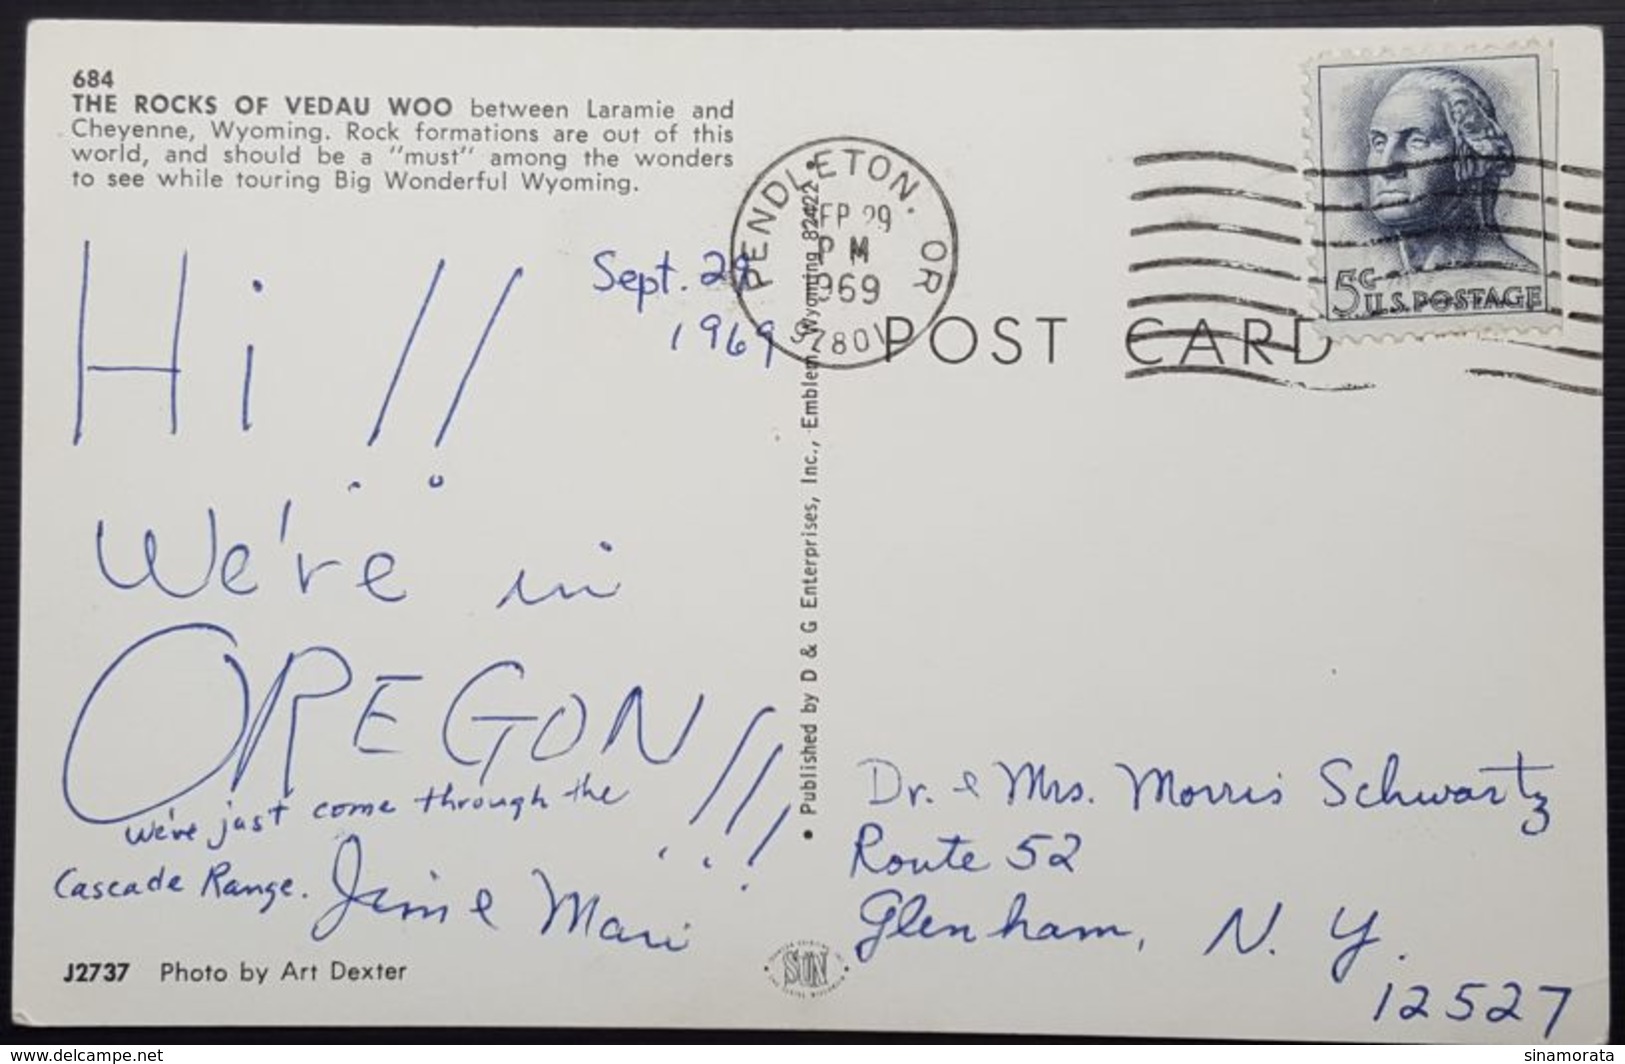 684
THE ROCKS OF VEDAU WOO between Laramie and
Cheyenne, Wyoming. Rock formations are out of this
world, and should be a "must" among the wonders
to see while touring Big Wonderful Wyoming.
Hi!!
Sept.
1969
We're in
OREGON!!!
We've just come through the
Cascade Range.
Jim & Mari
J2737 Photo by Art Dexter
• Published by D & G Enterprises, Inc., Emblem, Wyoming 82422 •
PENDLETON. OR
EP 29
PM
969
97801
POST CARD
5¢
U.S. POSTAGE
Dr. & Mrs. Morris Schwartz
Route 52
Glenham, N. Y.
12527
SUN
www.delcampe.net
sinamorata